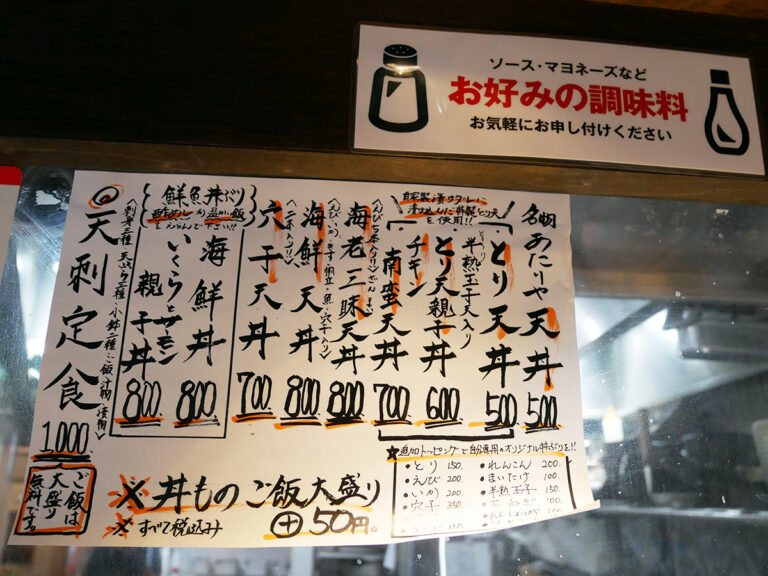 ソース・マヨネーズなど
お好みの調味料
お気軽にお申し付けください
名物
あたりや天丼 500
とり天丼 500
半熟玉子天入り
とり天親子丼 600
チキン南蛮天丼 700
自家製
を使用!!
海老三昧天丼 800
海鮮天丼 800
穴子天丼 700
鮮魚丼ぶり
酢めしか温か飯
海鮮丼 800
いくらとサーモン親子丼 800
天刺定食 1000
ご飯は大盛り無料です。
※丼ものご飯大盛り
⊕50円。
※すべて税込み
★追加トッピングで自分専用のオリジナル丼ぶりを!!
・とり 150.
・えび 200
・いか 200
・穴子 350
150
・れんこん 200.
・まいたけ 100.
・半熟玉子 150
・玉ねぎ 100
100